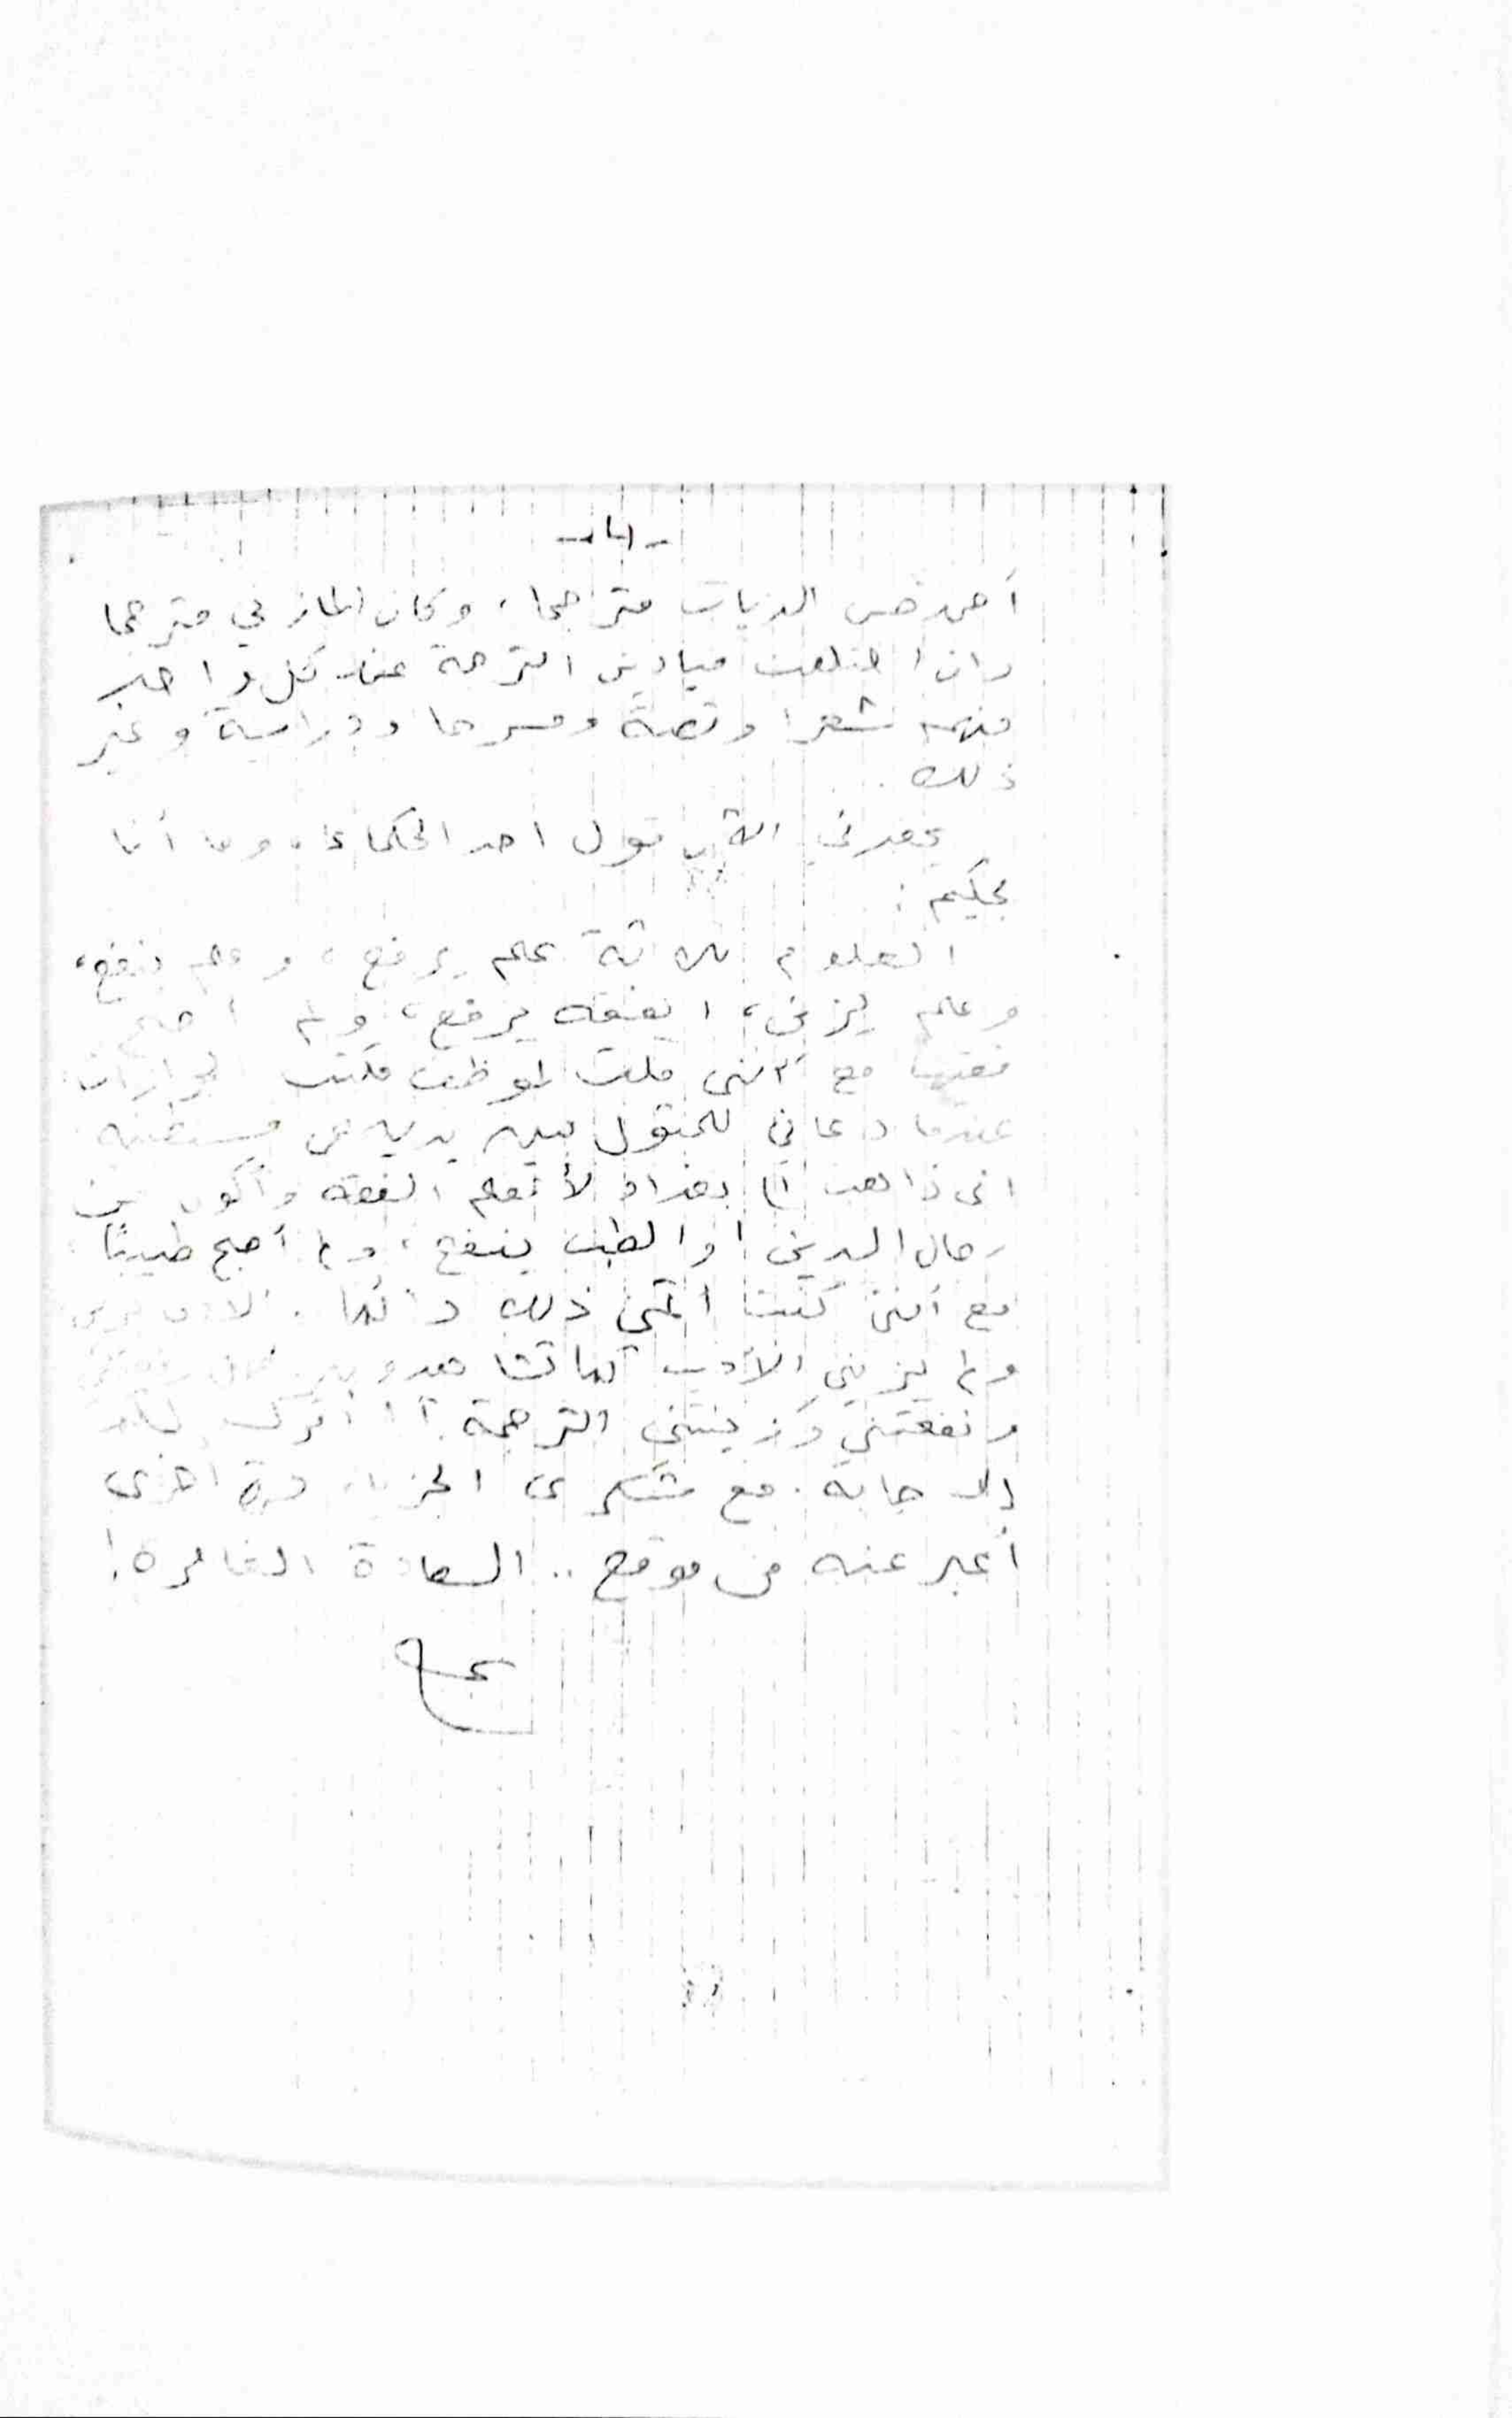 أحمد حسن الزيات مترجما، وكان المازني مترجما
وان اختلفت ميادين الترجمة عند كل واحد
منهم شعرا وقصة ومسرحا ودراسة وغير
ذلك.
يحضرني الآن قول احد الحكماء، وما أنا
بحكيم:
العلوم ثلاثة علم يرفع، وعلم ينفع،
وعلم يزين، الفقه يرفع، ولم اصبح
فقيها مع أنني قلت لموظف مكتب الجوازات
عندما دعاني للمثول بين يديه في
اني ذاهب الى بغداد لأتعلم الفقه وأكون من
رجال الدين! والطب ينفع، ولم أصبح طبيبًا
مع أنني كنت اتمنى ذلك دائما. الادب يزين
ولم يزيني الأدب كما تشاهدون
ونفعتني وزينتني الترجمة؟! أترك لك
الاجابة. مع شكري الجزيل مرة اخرى
أعبر عنه من موقع .. السعادة الغامرة!